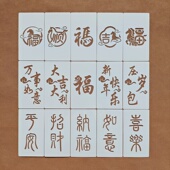 福 福 福 福 福
万事如意 大吉大利 福 新年快乐 压岁包
平安 招财 纳福 如意 喜乐